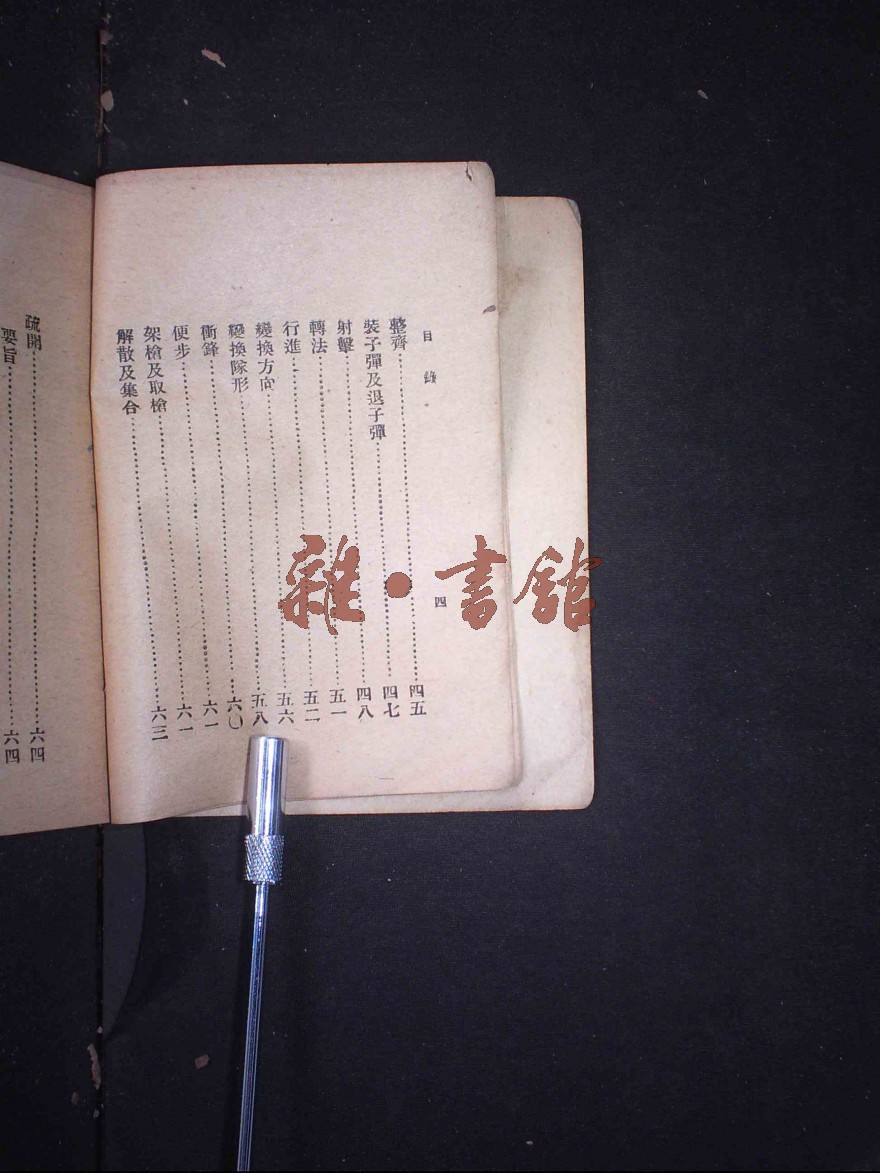 目錄 四
整齊……四五
裝子彈及退子彈……四七
射擊……四八
轉法……五一
行進……五二
變換方向……五六
變換隊形……五八
衝鋒……六〇
便步……六一
架槍及取槍……六一
解散及集合……六三
疏開……六四
要旨……六四
雜·書館